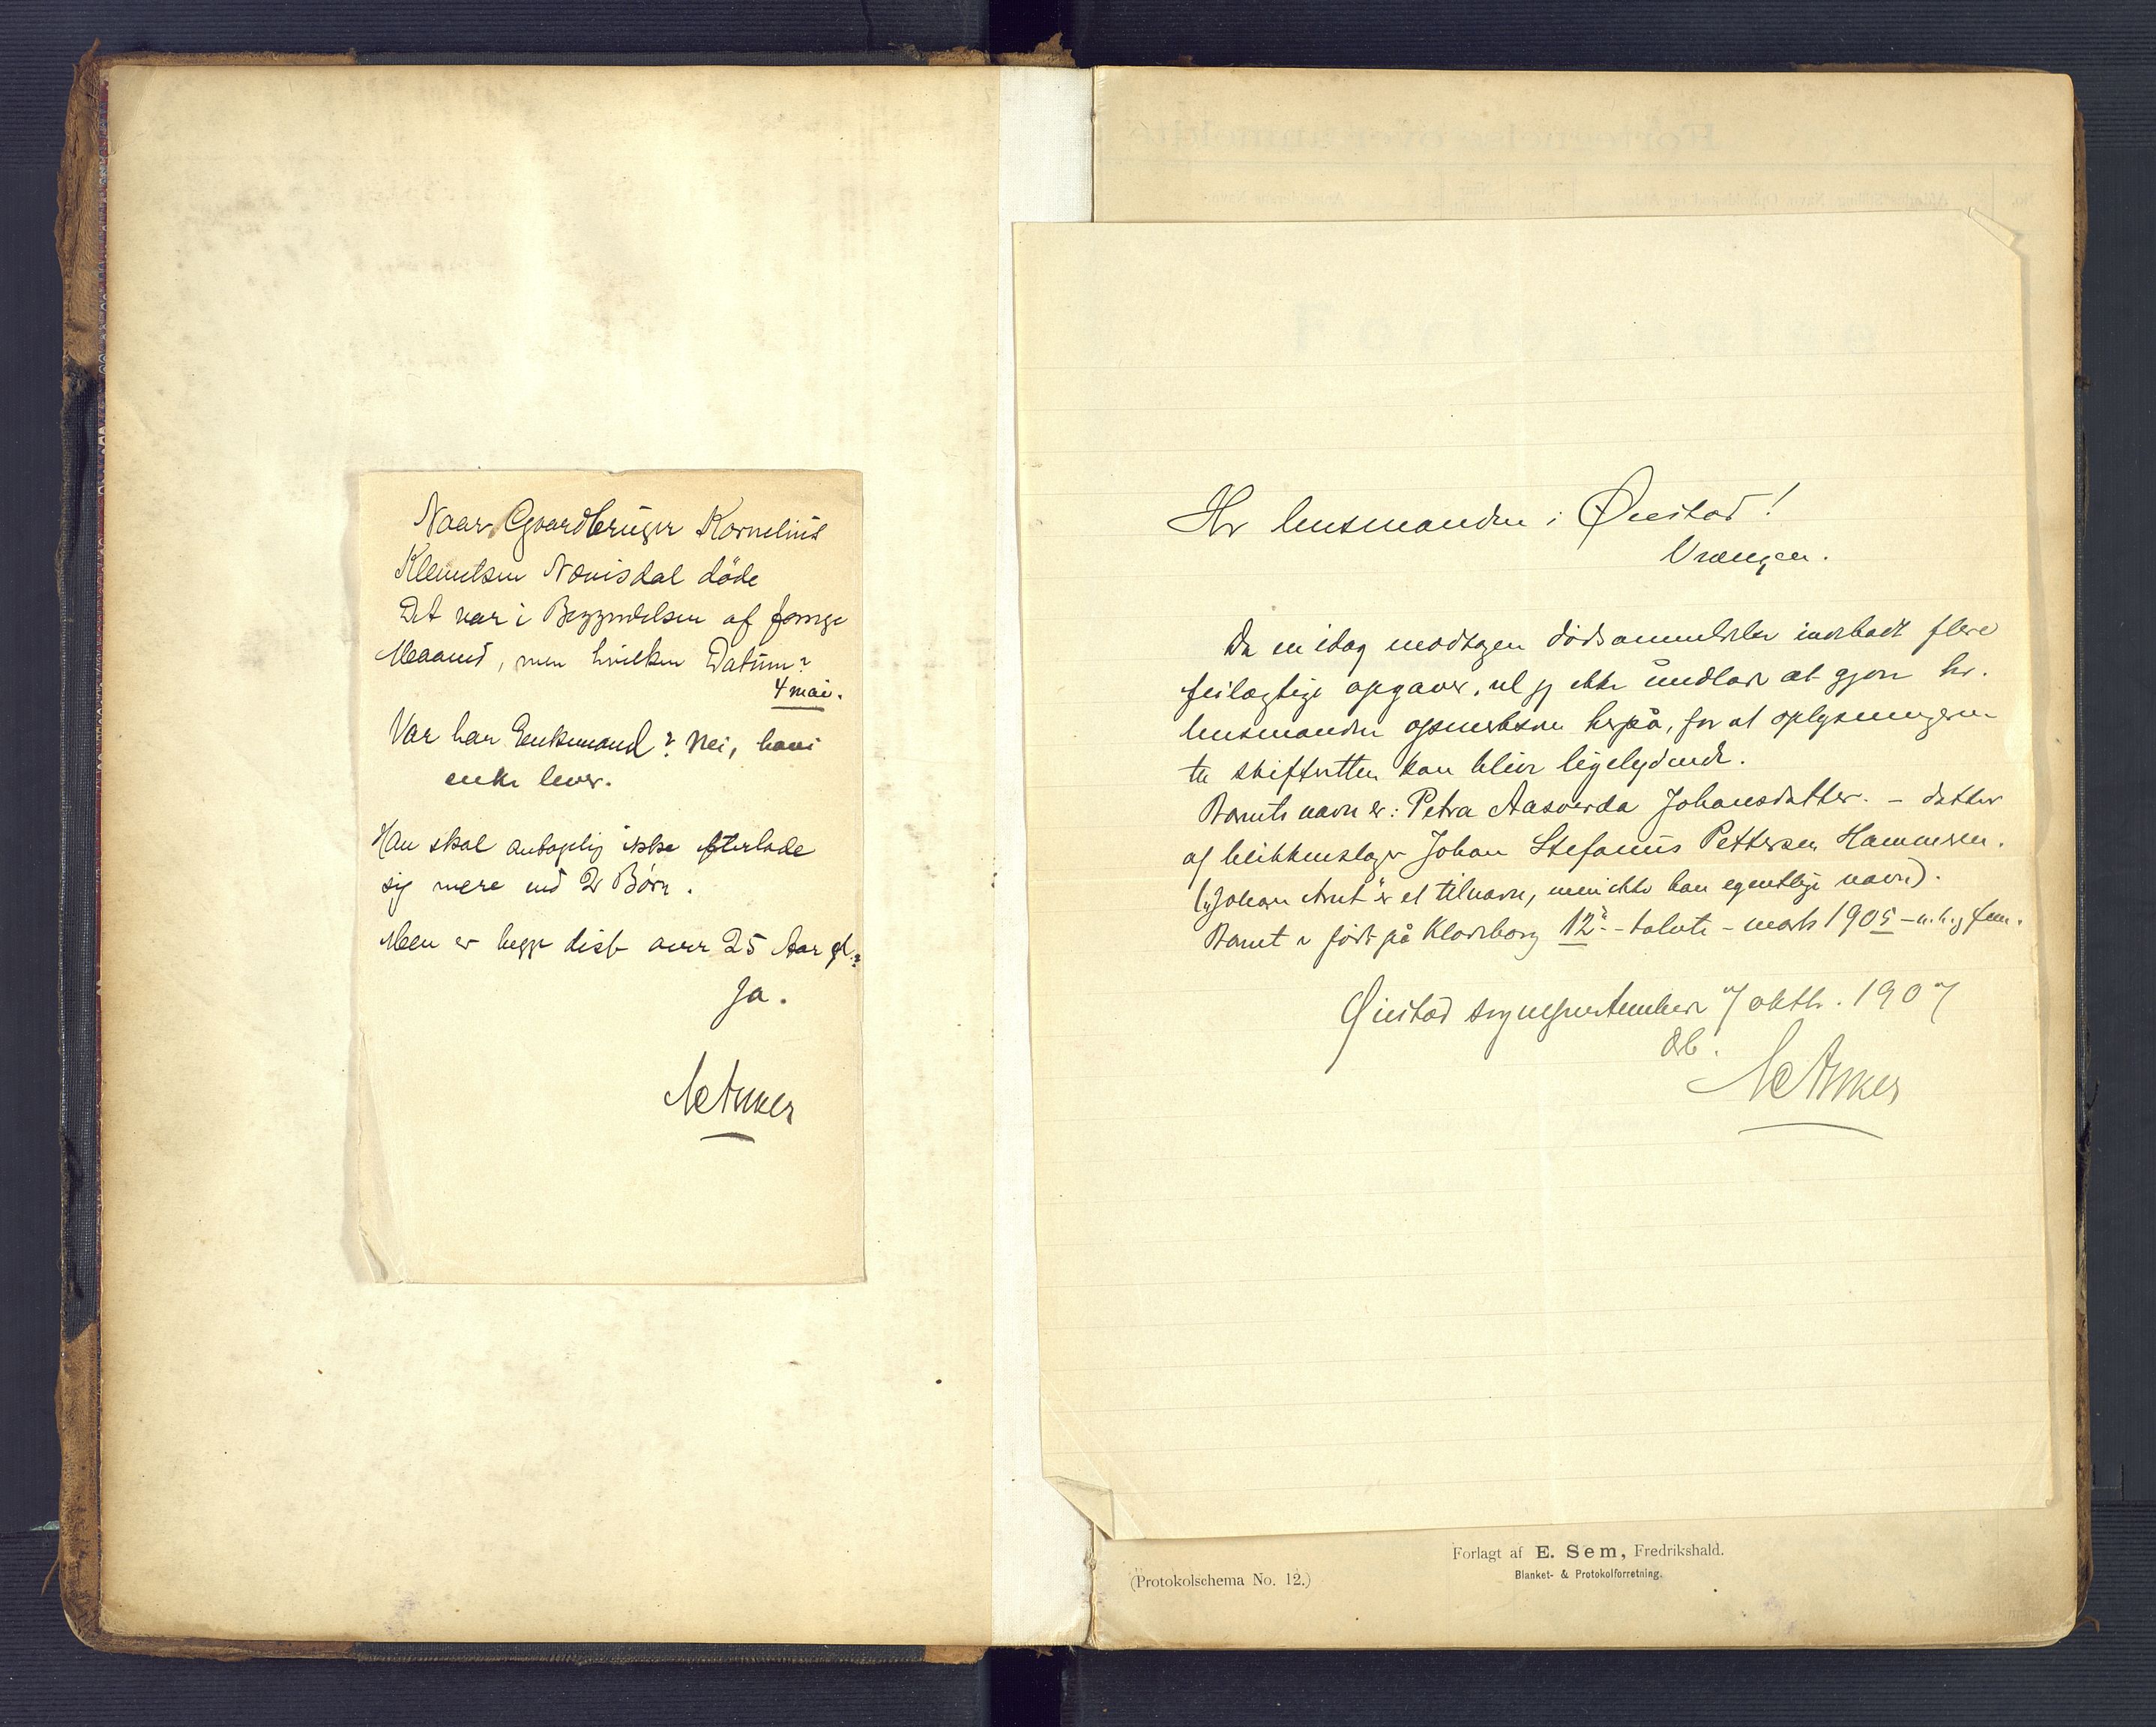 Naar Gaardbruger Kornelius
Klemetsen Nævisdal döde
Det var i Begyndelsen af forrige
Maaned, men hvilken Datum?
4 mai.
Var han Enkemand? Nei, hans
enke lever.
Han skal antagelig ikke efterlade
sig mere end 2 Börn.
Men er begge disse over 25 Aar gl.?
Ja.
McAnker
Hr lensmanden i Øiestad!
Vrængen.
Da en idag modtagen dödsanmeldelse indeholdt flere
feilagtige opgaver, vil jeg ikke undlade at gjøre hr.
lensmanden opmerksom herpå, for at oplysningerne
til skifteretten kan blive ligelydende.
Barnets navn er: Petra Aasverda Johansdatter. - datter
af blikkenslager Johan Stefanus Pettersen Hammeren.
("Johan Arnt" er et tilnavn, men ikke hans egentlige navn).
Barnet er født på Klodeborg 12te - tolvte - marts 1905 - n. h. g fem.
Øiestad sogneprestembede 7 oktb. 1907
Ærb.
McAnker
Forlagt af E. Sem, Fredrikshald.
Blanket- & Protokolforretning.
(Protokolschema No. 12.)